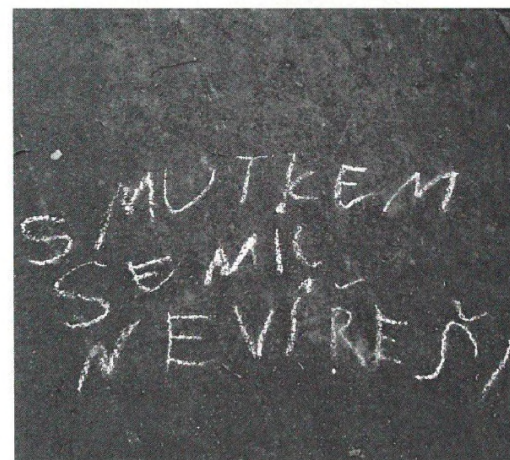 SMUTKEM
SE NIC
NEVÍŘEŠÍ